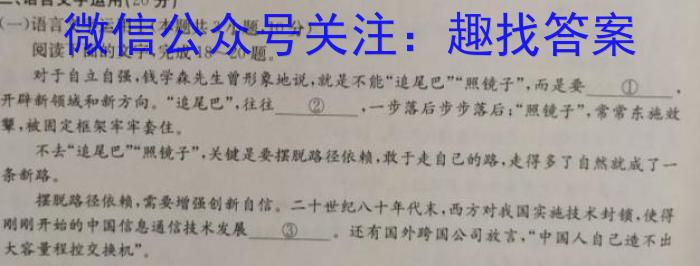 二、语言文字运用(20分)
(一)语言
微信公众号关注：趣找答案
阅读下面的文字,完成18~20题。
对于自立自强,钱学森先生曾形象地说,就是不能“追尾巴”“照镜子”,而是要 ① ,
开辟新领域和新方向。“追尾巴”,往往 ② ,一步落后步步落后;“照镜子”,常常东施效
颦,被固定框架牢牢套住。
不去“追尾巴”“照镜子”,关键是要摆脱路径依赖,敢于走自己的路,走得多了自然就成了一
条新路。
摆脱路径依赖,需要增强创新自信。二十世纪八十年代末,西方对我国实施技术封锁,使得
刚刚开始的中国信息通信技术发展 ③ 。还有国外跨国公司放言,“中国人自己造不出
大容量程控交换机”。